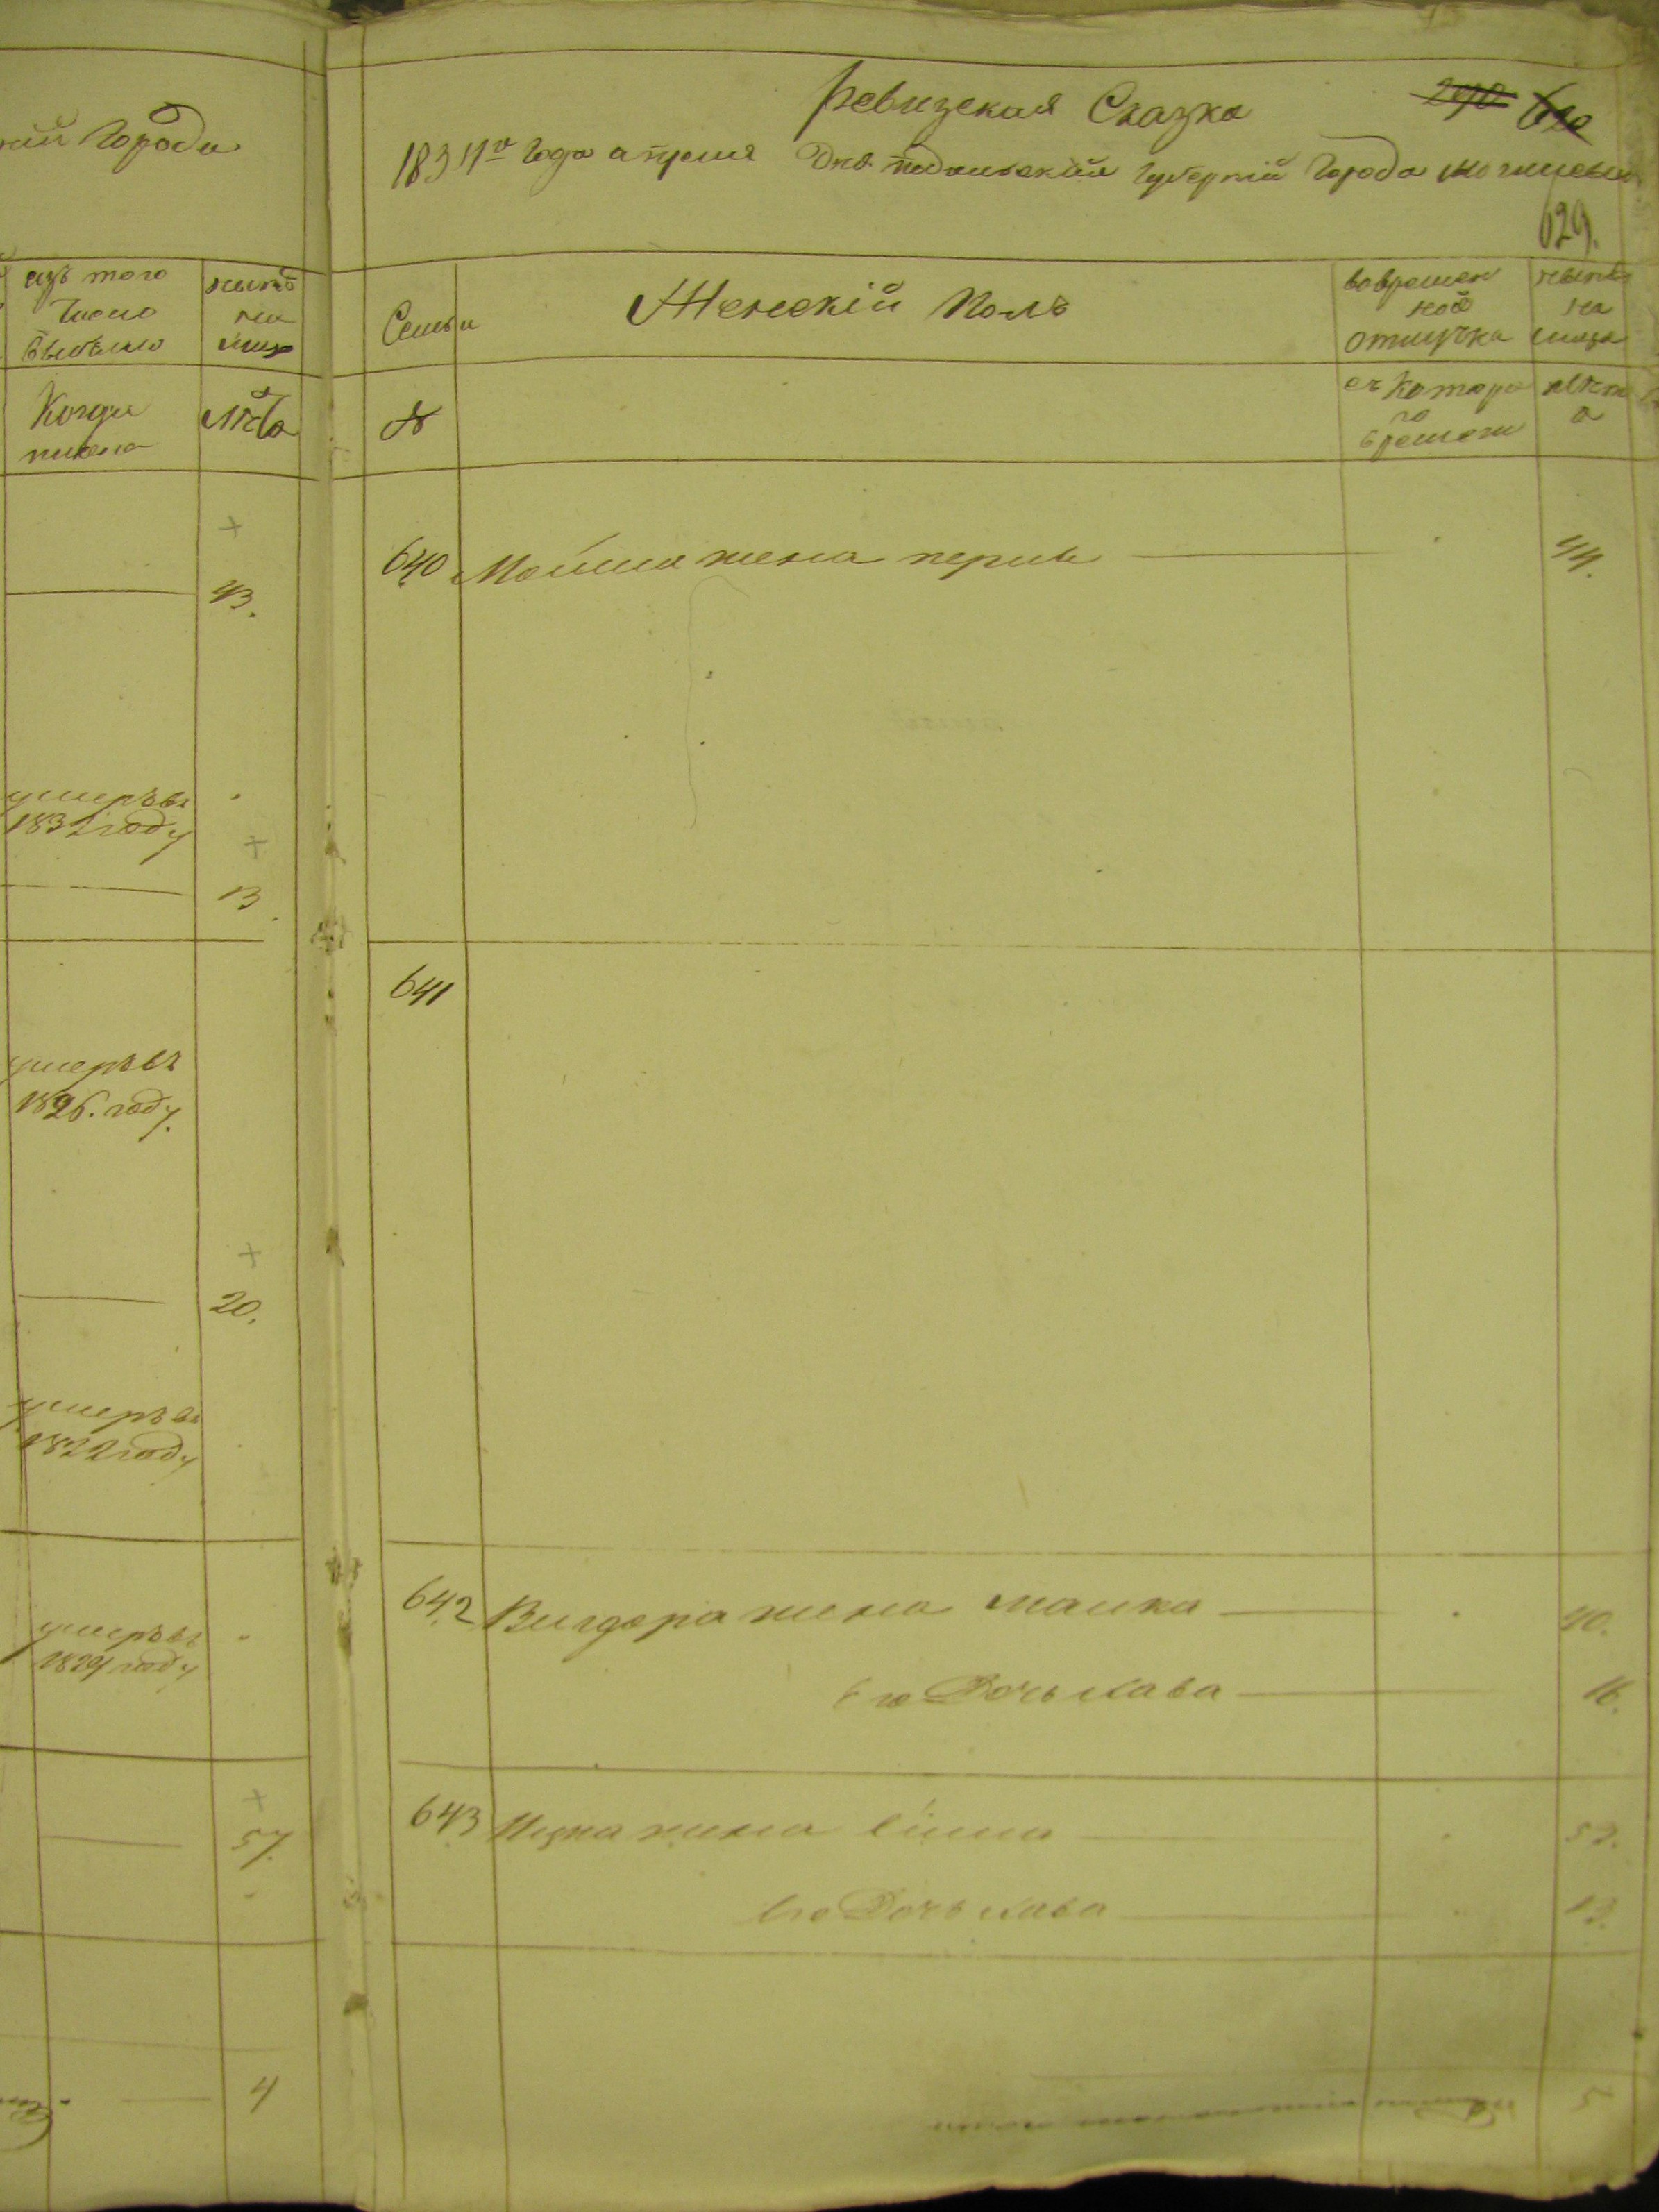 ий Города
изъ того
числа
выбыло
ныне
на
лицо
Когда
имено
лѣта
43.
умеръ въ
1832 году
13.
умеръ въ
1826. году.
20.
умеръ въ
1822 году
умеръ въ
1829 году
57.
4
Ревизская Сказка
290
1834го года апреля Дня подольской Губерніи Города Могилева
629.
Семьи
Женскій Полъ
во времен
ной
отлучка
ныне
на
лицо
№
съ Которо
го
времени
лѣт
а
640 Мошка жена перля 44.
641
642 Вигдора жена малка 40.
Его Дочь хава 16.
643 Ицка жена
Его Дочь хава 13.
5